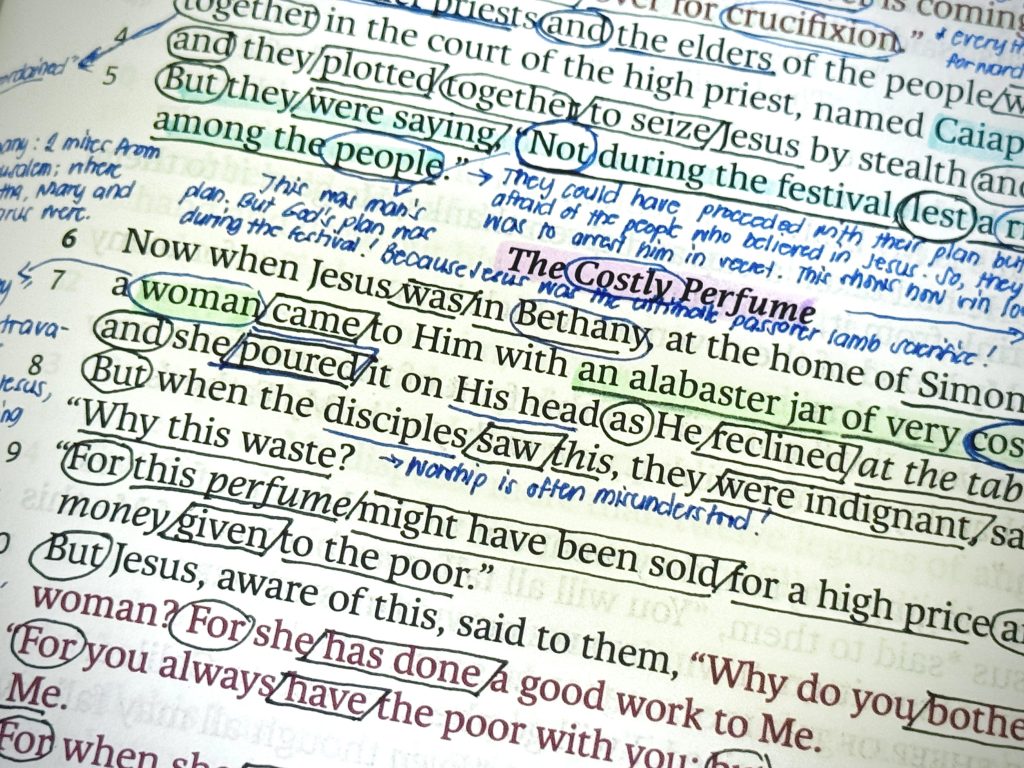 is coming
for crucifixion."
priests and the elders of the people
* every
forward
4
together in the court of the high priest, named Caiap
and they plotted together to seize Jesus by stealth and
5
But they were saying, "Not during the festival, lest a
among the people."
2 miles from
where
Mary and
were.
This was man's
plan. But God's plan was
during the festival! Because Jesus was the ultimate passover lamb sacrifice!
→ They could have proceeded with their plan but
afraid of the people who believed in Jesus. So, they
was to arrest him in secret. This shows how
The Costly Perfume
6
Now when Jesus was in Bethany, at the home of Simon
7
a woman came to Him with an alabaster jar of very cos
and she poured it on His head as He reclined at the tab
8
But when the disciples saw this, they were indignant, sa
"Why this waste?
→ Worship is often misunderstood!
9
"For this perfume might have been sold for a high price
money given to the poor."
But Jesus, aware of this, said to them, "Why do you bothe
woman? For she has done a good work to Me.
"For you always have the poor with you;
Me.
For when she